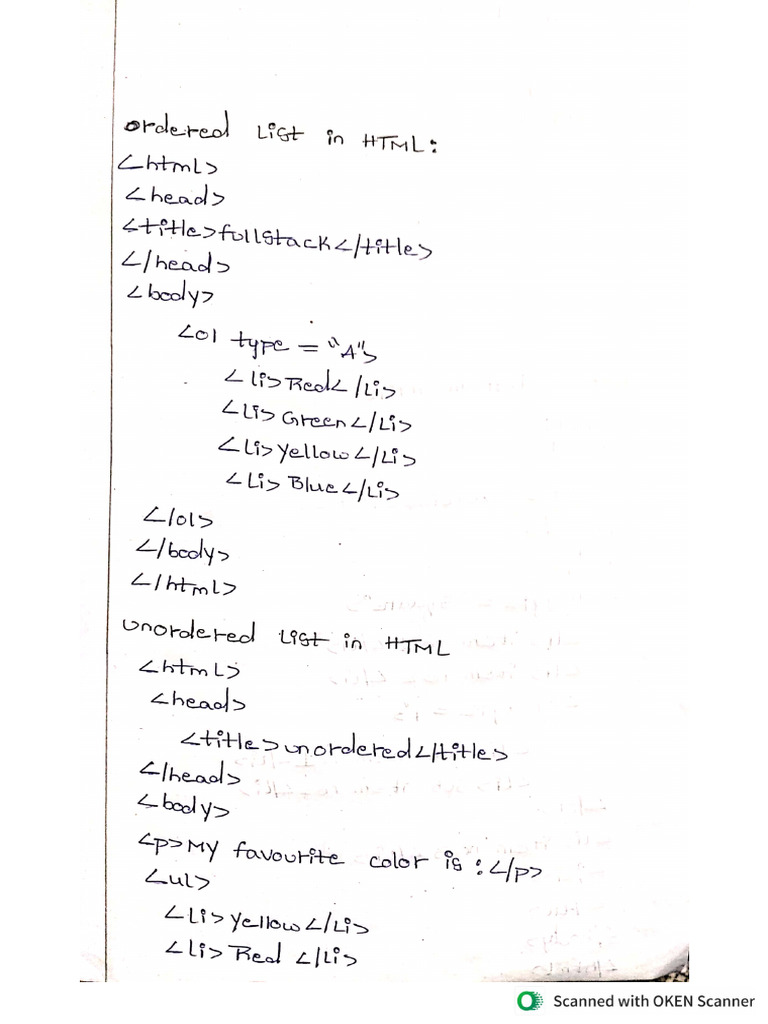 ordered List in HTML:
<html>
<head>
<title>fullstack</title>
</head>
<body>
<ol type = "A">
<li>Red</li>
<Li>Green</Li>
<Li>yellow</Li>
<Li>Blue</Li>
</ol>
</body>
</html>
unordered List in HTML
<html>
<head>
<title>unordered</title>
</head>
<body>
<p>My favourite color is :</p>
<ul>
<Li>yellow</Li>
<li>Red </li>
Scanned with OKEN Scanner